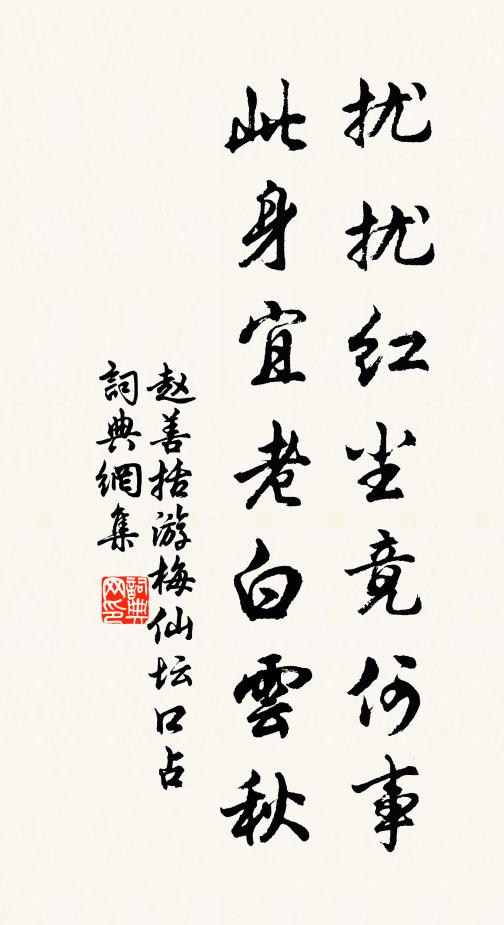 扰扰红尘竟何事
此身宜老白雲秋
赵善括游梅仙坛口占
詞典網集
詞典網印